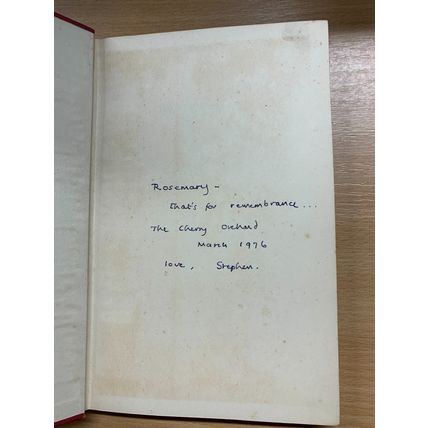 Rosemary –
that's for remembrance...
The Cherry Orchard
March 1976
love, Stephen.